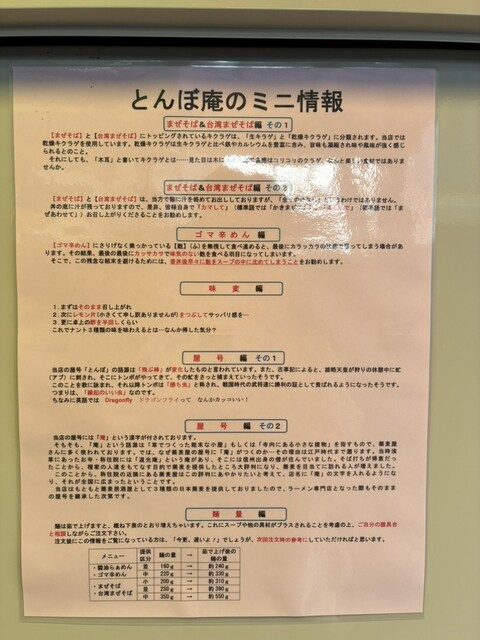 とんぼ庵のミニ情報
まぜそば＆台湾まぜそば編 その１
【まぜそば】と【台湾まぜそば】にトッピングされているキクラゲは、「生キクラゲ」と「乾燥キクラゲ」に分類されます。当店では
乾燥キクラゲを使用しています。乾燥キクラゲは生キクラゲと比べ鉄やカルシウムを豊富に含み、旨味も凝縮され味や風味が強く感じ
られるとのこと。
それにしても、「木耳」と書いてキクラゲとは……見た目は木に
コリコリのクラゲ、
ませ
んか。
まぜそば＆台湾まぜそば編
【まぜそば】と【台湾まぜそば】は、当方で麺に汁を絡めてお出ししておりますが、
わけではありません。
丼の底に汁が残っておりますので、是非、皆様自身で「カマして」（標準語では「かきまぜ
ぜあわせて」）お召し上がりくださることをお勧めします。
ゴマ辛めん 編
【ゴマ辛めん】にさりげなく乗っかっている【麩】（ふ）を無視して食べ進めると、最後にカラッカラの状態で残ってしまう場合があ
ります。その結果、最後の最後にカッサカサで味気のない麩を食べる羽目になってしまいます。
そこで、この残念な結末を避けるためには、着丼後早々に麩をスープの中に沈めてしまうことをお勧めします。
味 変 編
１.まずはそのまま召し上がれ
２.次にレモン片(小さくて申し訳ありませんが)をつぶしてサッパリ感を…
３.更に卓上の酢を半回しくらい
これでナント３種類の味を味わえるとは…なんか得した気分？
屋 号 編 その１
当店の屋号「とんぼ」の語源は「飛ぶ棒」が変化したものと言われています。また、古事記によると、雄略天皇が狩りの休憩中に虻
(アブ)に刺され、そこにトンボがやってきて、その虻をさっと捕まえていったそうです。
このことを歌に詠まれ、それ以降トンボは「勝ち虫」と称され、戦国時代の武将達に勝利の証として喜ばれるようになったそうです。
つまりは、「縁起のいい虫」なのです。
ちなみに英語では Dragonfly ドラゴンフライって なんかカッコいい！
屋 号 編 その２
当店の屋号には「庵」という漢字が付されております。
そもそも、「庵」という語源は「草でつくった粗末な小屋」もしくは「寺内にある小さな建物」を指すもので、蕎麦屋
さんに多く使われております。では、なぜ蕎麦屋の屋号に「庵」がつくのか…その理由は江戸時代まで遡ります。当時浅
草にあったお寺・称往院には「道光庵」という庵があり、そこには信州出身の僧が住んでいました。そば打ちが得意だっ
たことから、檀家の人達をもてなす目的で蕎麦を提供したところ大評判になり、蕎麦を目当てに訪れる人が増えました。
このことから、称往院の近隣にある蕎麦屋はこの評判にあやかりたいと考えて、店名に「庵」の文字を入れるようにな
り、それが全国に広まったということです。
当店はもともと蕎麦居酒屋として３種類の日本蕎麦を提供しておりましたので、ラーメン専門店となった際もそのまま
の屋号を継承した次第です。
麺 量 編
麺は茹で上げますと、概ね下表のとおり増えちゃいます。これにスープや他の具材がプラスされることを考慮の上、ご自分の腹具合
と相談しながらご注文下さい。
注文後にこの情報をご覧になっている方は、「今更、遅いよ！」でしょうが、次回注文時の参考にしていただければと思います。
メニュー 提供区分 麺の量 → 茹で上げ後の麺の量
・醤油らぁめん 並 160ｇ → 約240ｇ
・ゴマ辛めん 中 220ｇ → 約330ｇ
・まぜそば 小 200ｇ → 約310ｇ
・台湾まぜそば 並 250ｇ → 約390ｇ
中 350ｇ → 約550ｇ